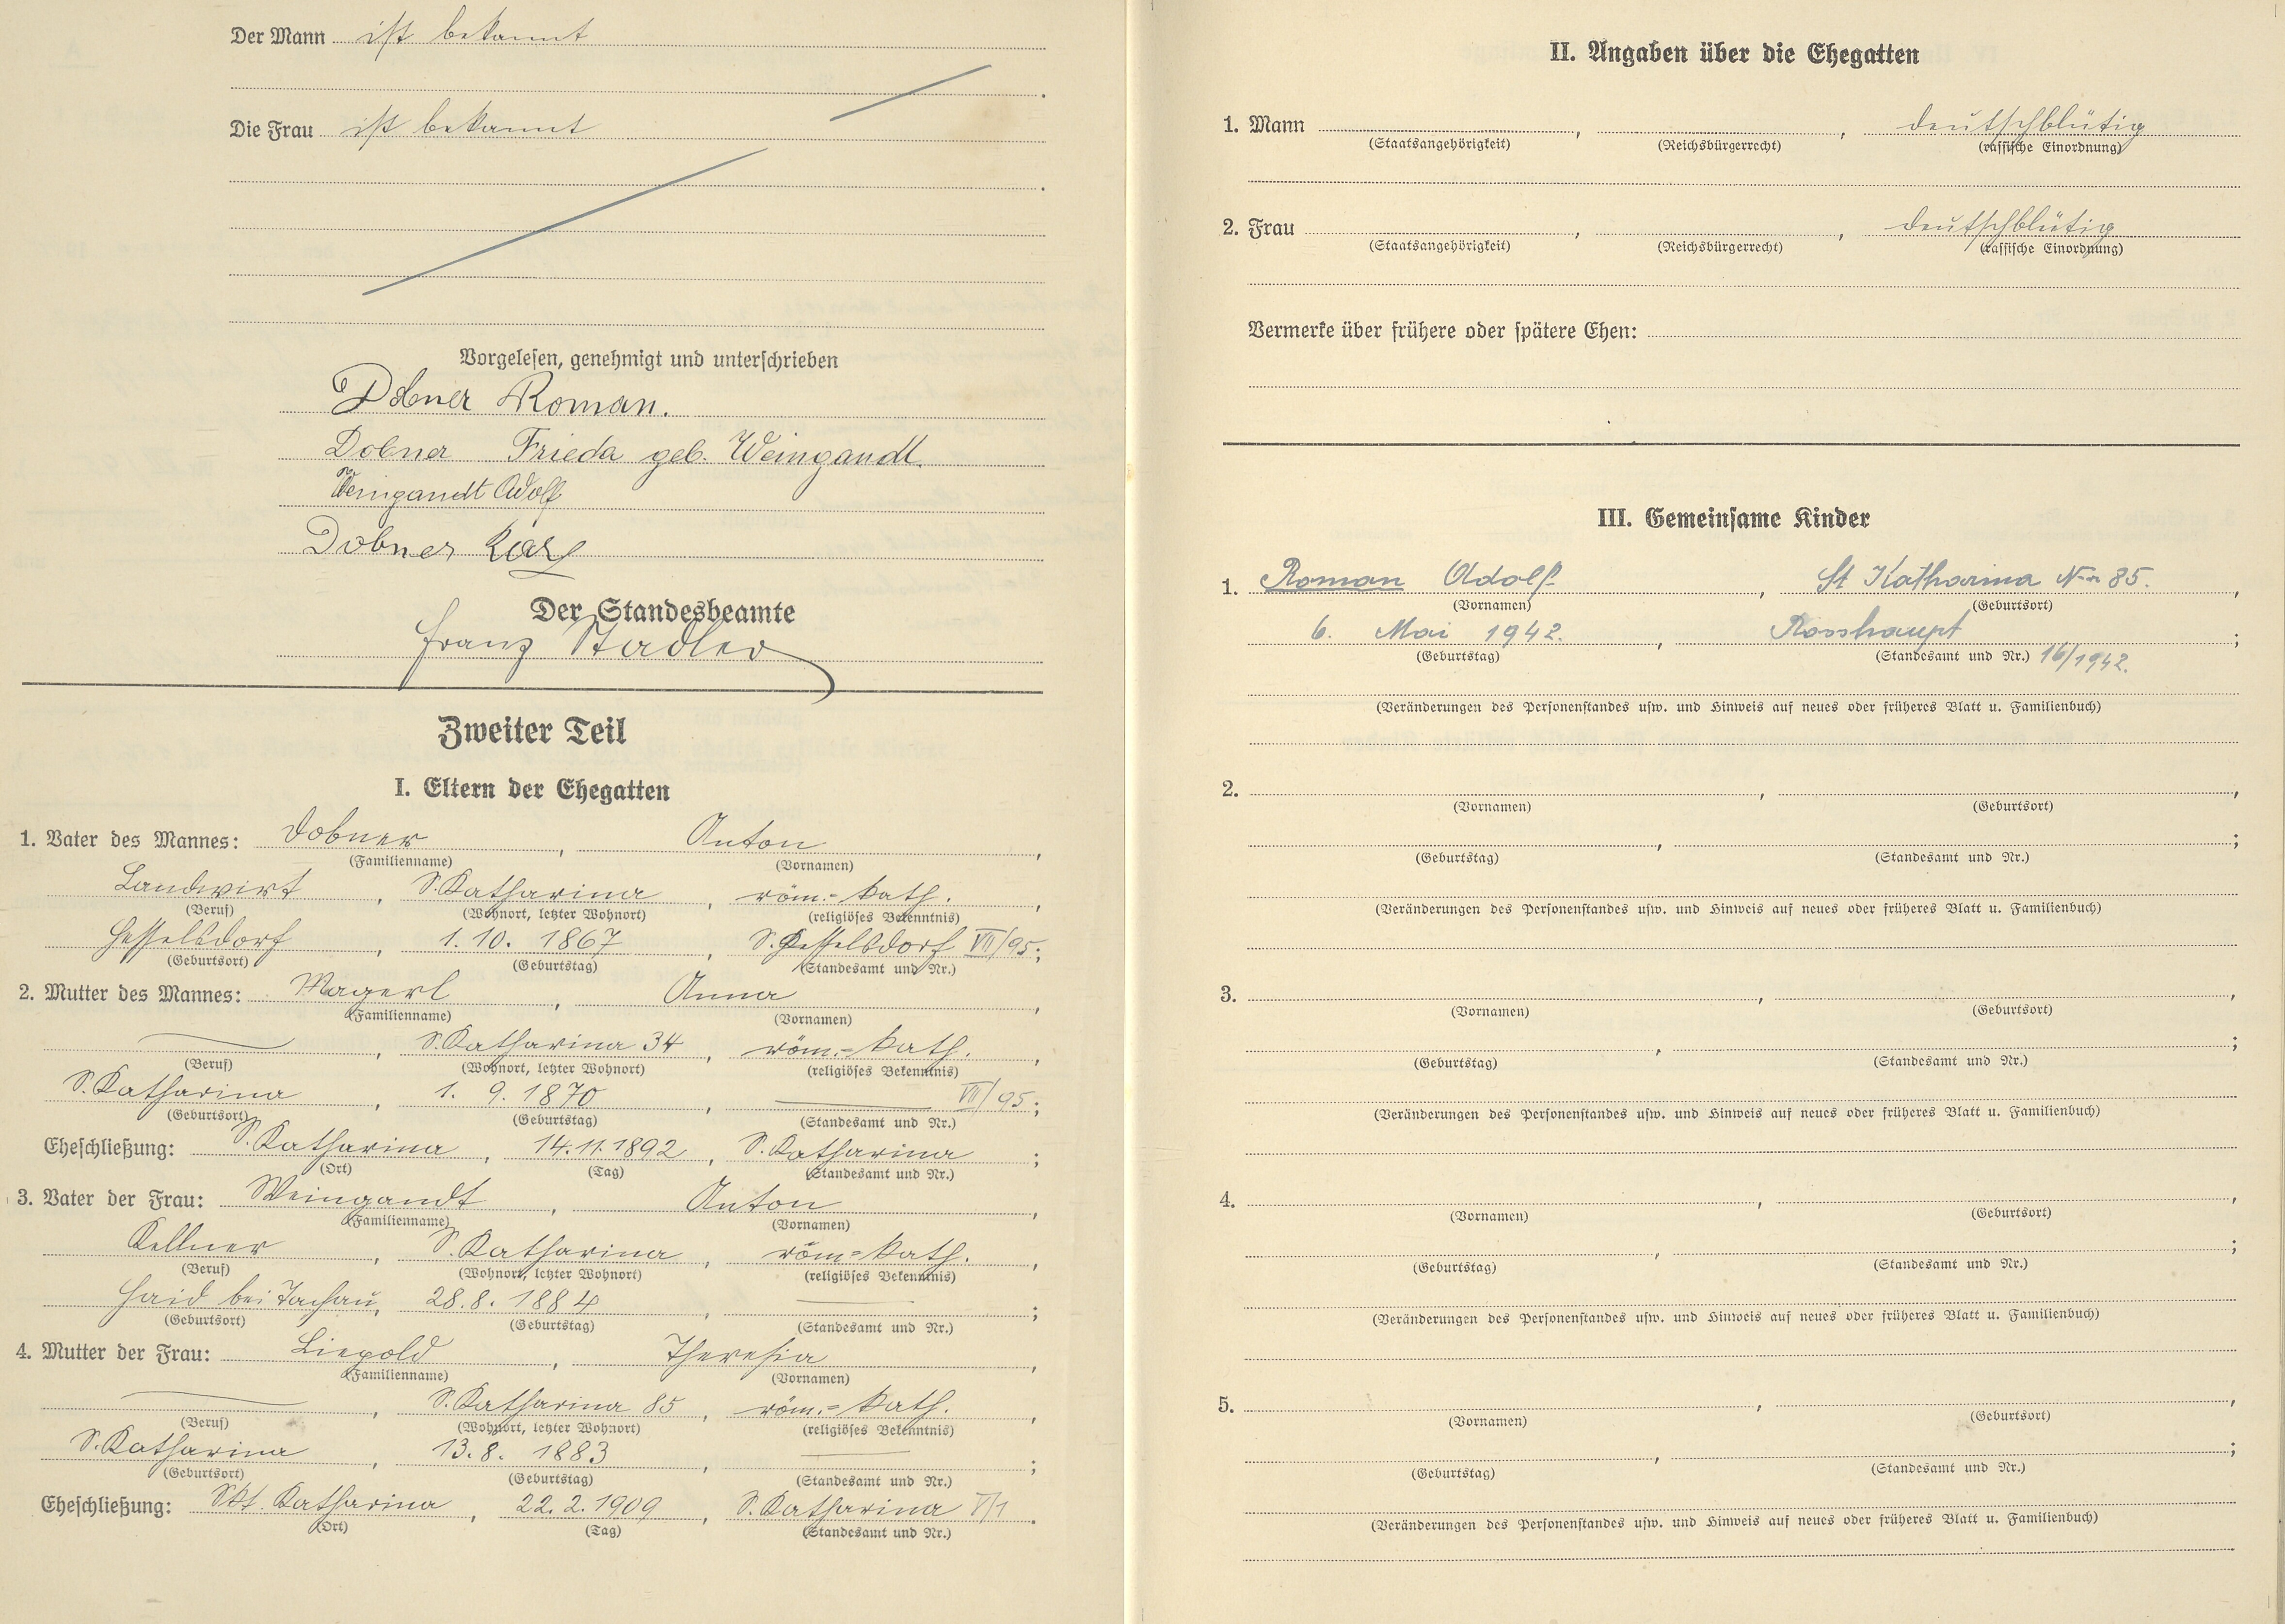 Der Mann ist bekannt
Die Frau ist bekannt
Vorgelesen, genehmigt und unterschrieben
Dobner Roman.
Dobner Frieda geb. Weingandt.
Weingandt Adolf
Dobner Karl
Der Standesbeamte
Franz Stadler
Zweiter Teil
I. Eltern der Ehegatten
1. Vater des Mannes: Dobner, Anton,
(Familienname) (Vornamen)
Landwirt, S. Katharina, röm.-kath.,
(Beruf) (Wohnort, letzter Wohnort) (religiöses Bekenntnis)
Hesselsdorf, 1. 10. 1867, S. Hesselsdorf VII/95;
(Geburtsort) (Geburtstag) (Standesamt und Nr.)
2. Mutter des Mannes: Magerl, Anna,
(Familienname) (Vornamen)
, S. Katharina 34, röm.-kath.,
(Beruf) (Wohnort, letzter Wohnort) (religiöses Bekenntnis)
S. Katharina, 1. 9. 1870, VII/95;
(Geburtsort) (Geburtstag) (Standesamt und Nr.)
Eheschließung: S. Katharina, 14.11.1892, S. Katharina;
(Ort) (Tag) (Standesamt und Nr.)
3. Vater der Frau: Weingandt, Anton,
(Familienname) (Vornamen)
Kellner, S. Katharina, röm=kath.,
(Beruf) (Wohnort, letzter Wohnort) (religiöses Bekenntnis)
Haid bei Tachau, 28.8. 1884, ;
(Geburtsort) (Geburtstag) (Standesamt und Nr.)
4. Mutter der Frau: Liepold, Theresia,
(Familienname) (Vornamen)
, S. Katharina 85, röm.=kath.,
(Beruf) (Wohnort, letzter Wohnort) (religiöses Bekenntnis)
S. Katharina, 13.8. 1883, ;
(Geburtsort) (Geburtstag) (Standesamt und Nr.)
Eheschließung: Skt. Katharina, 22.2.1909, S. Katharina V/1.
(Ort) (Tag) (Standesamt und Nr.)
II. Angaben über die Ehegatten
1. Mann , , deutschblütig
(Staatsangehörigkeit) (Reichsbürgerrecht) (rassische Einordnung)
2. Frau , , deutschblütig
(Staatsangehörigkeit) (Reichsbürgerrecht) (rassische Einordnung)
Vermerke über frühere oder spätere Ehen:
III. Gemeinsame Kinder
1. Roman Adolf, St Katharina Nr 85.,
(Vornamen) (Geburtsort)
6. Mai 1942., Rosshaupt;
(Geburtstag) (Standesamt und Nr.) 16/1942.
(Veränderungen des Personenstandes usw. und Hinweis auf neues oder früheres Blatt u. Familienbuch)
2. , ,
(Vornamen) (Geburtsort)
, ;
(Geburtstag) (Standesamt und Nr.)
(Veränderungen des Personenstandes usw. und Hinweis auf neues oder früheres Blatt u. Familienbuch)
3. , ,
(Vornamen) (Geburtsort)
, ;
(Geburtstag) (Standesamt und Nr.)
(Veränderungen des Personenstandes usw. und Hinweis auf neues oder früheres Blatt u. Familienbuch)
4. , ,
(Vornamen) (Geburtsort)
, ;
(Geburtstag) (Standesamt und Nr.)
(Veränderungen des Personenstandes usw. und Hinweis auf neues oder früheres Blatt u. Familienbuch)
5. , ,
(Vornamen) (Geburtsort)
, ;
(Geburtstag) (Standesamt und Nr.)
(Veränderungen des Personenstandes usw. und Hinweis auf neues oder früheres Blatt u. Familienbuch)